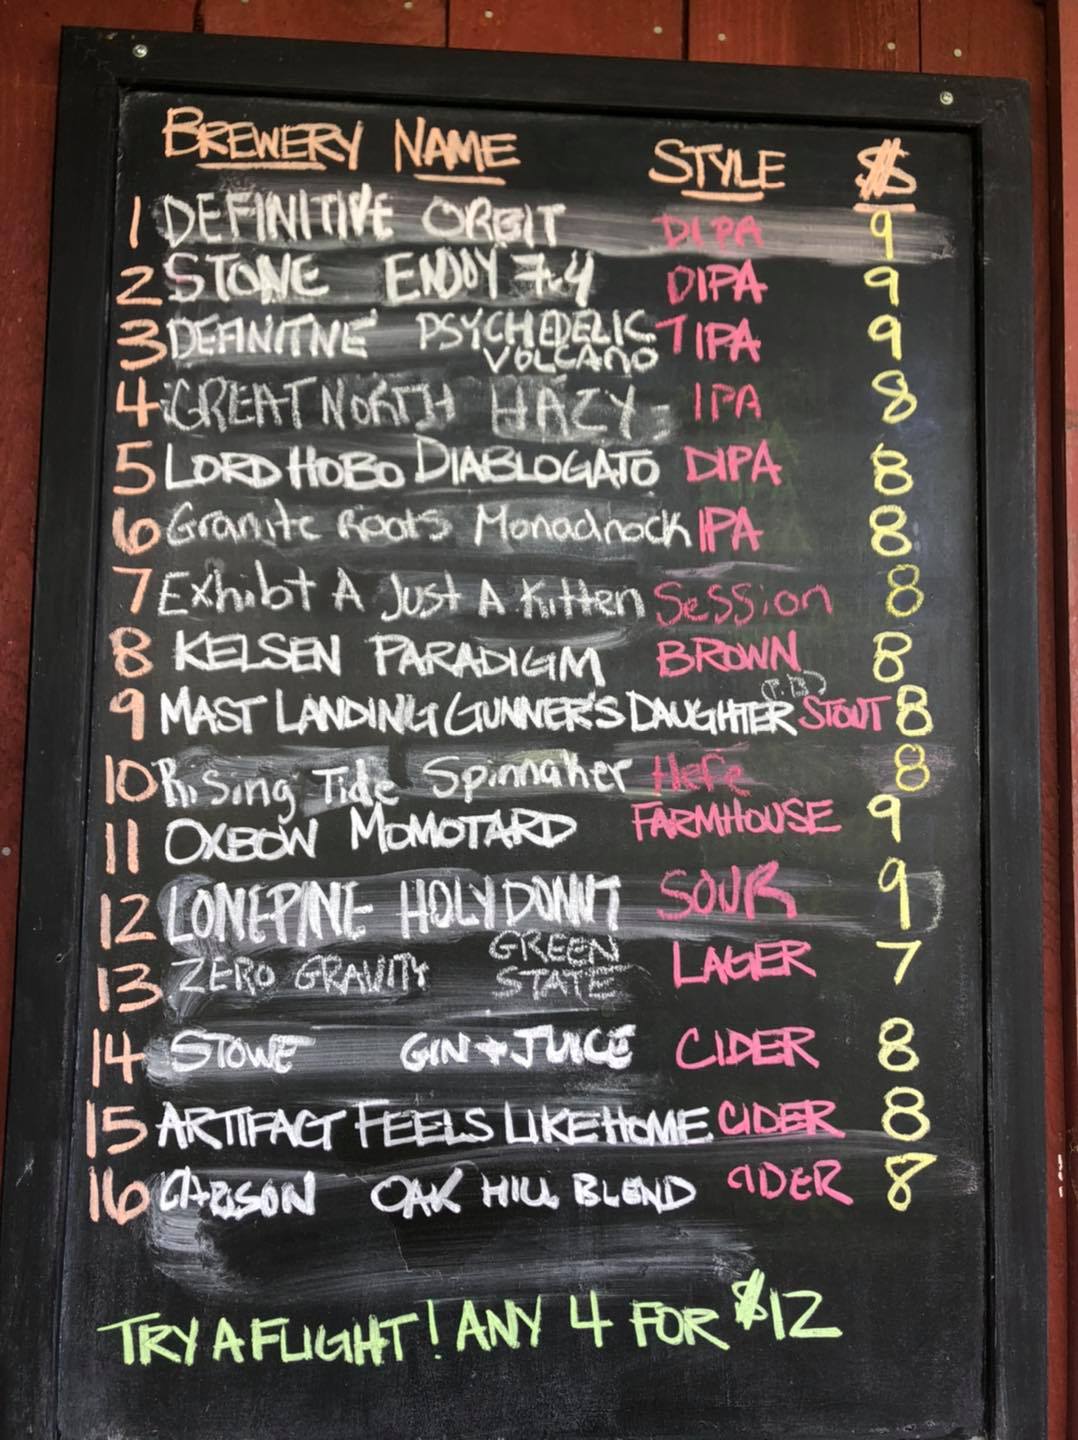 BREWERY NAME STYLE $
1 DEFINITIVE ORBIT DIPA 9
2 STONE ENJOY 7.4 DIPA 9
3 DEFINITIVE PSYCHEDELIC VOLCANO TIPA 9
4 GREAT NORTH HAZY IPA 8
5 LORD HOBO DIABLOGATO DIPA 8
6 Granite Roots Monadnock IPA 8
7 Exhibt A Just A Kitten Session 8
8 KELSEN PARADIGM BROWN 8
9 MAST LANDING GUNNER'S DAUGHTER STOUT 8
10 Rising Tide Spinnaker Hefe 8
11 OXBOW MOMOTARO FARMHOUSE 9
12 LONEPINE HOLY DONUT SOUR 9
13 ZERO GRAVITY GREEN STATE LAGER 7
14 STOWE GIN + JUICE CIDER 8
15 ARTIFACT FEELS LIKE HOME CIDER 8
16 CARLSON OAK HILL BLEND CIDER 8
TRY A FLIGHT! ANY 4 FOR $12